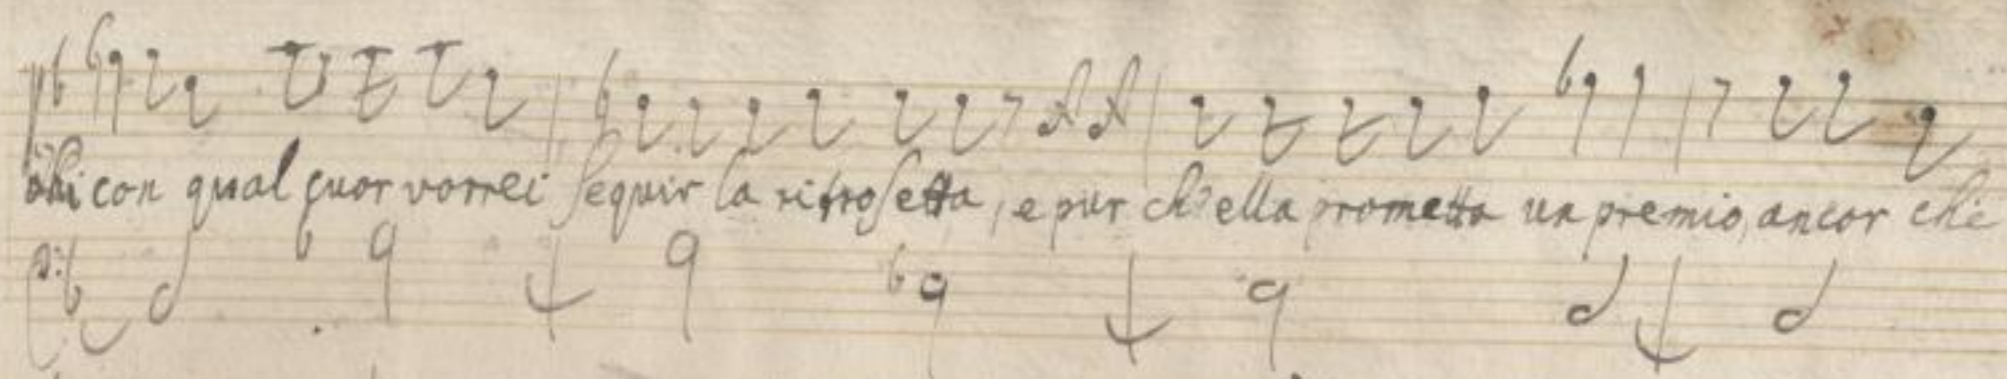 ohi con qual cuor vorrei seguir la ritrosetta, e pur ch'ella prometta un premio, ancor che